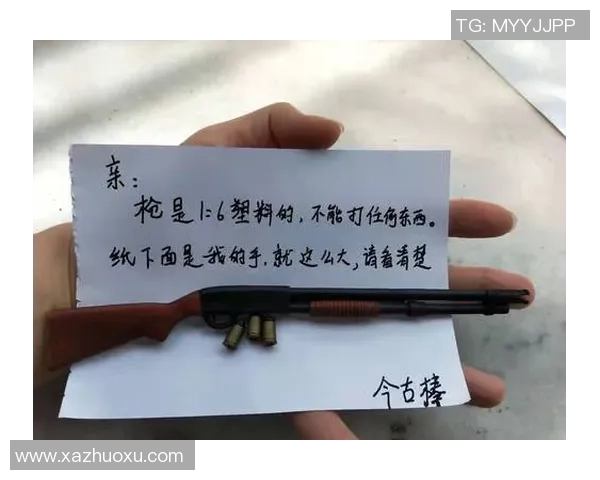 TG: MYYJJPP
亲：
枪是1:6塑料的，不能打任何东西。
纸下面是我的手，就这么大，请看清楚
今古榛
www.xazhuoxu.com